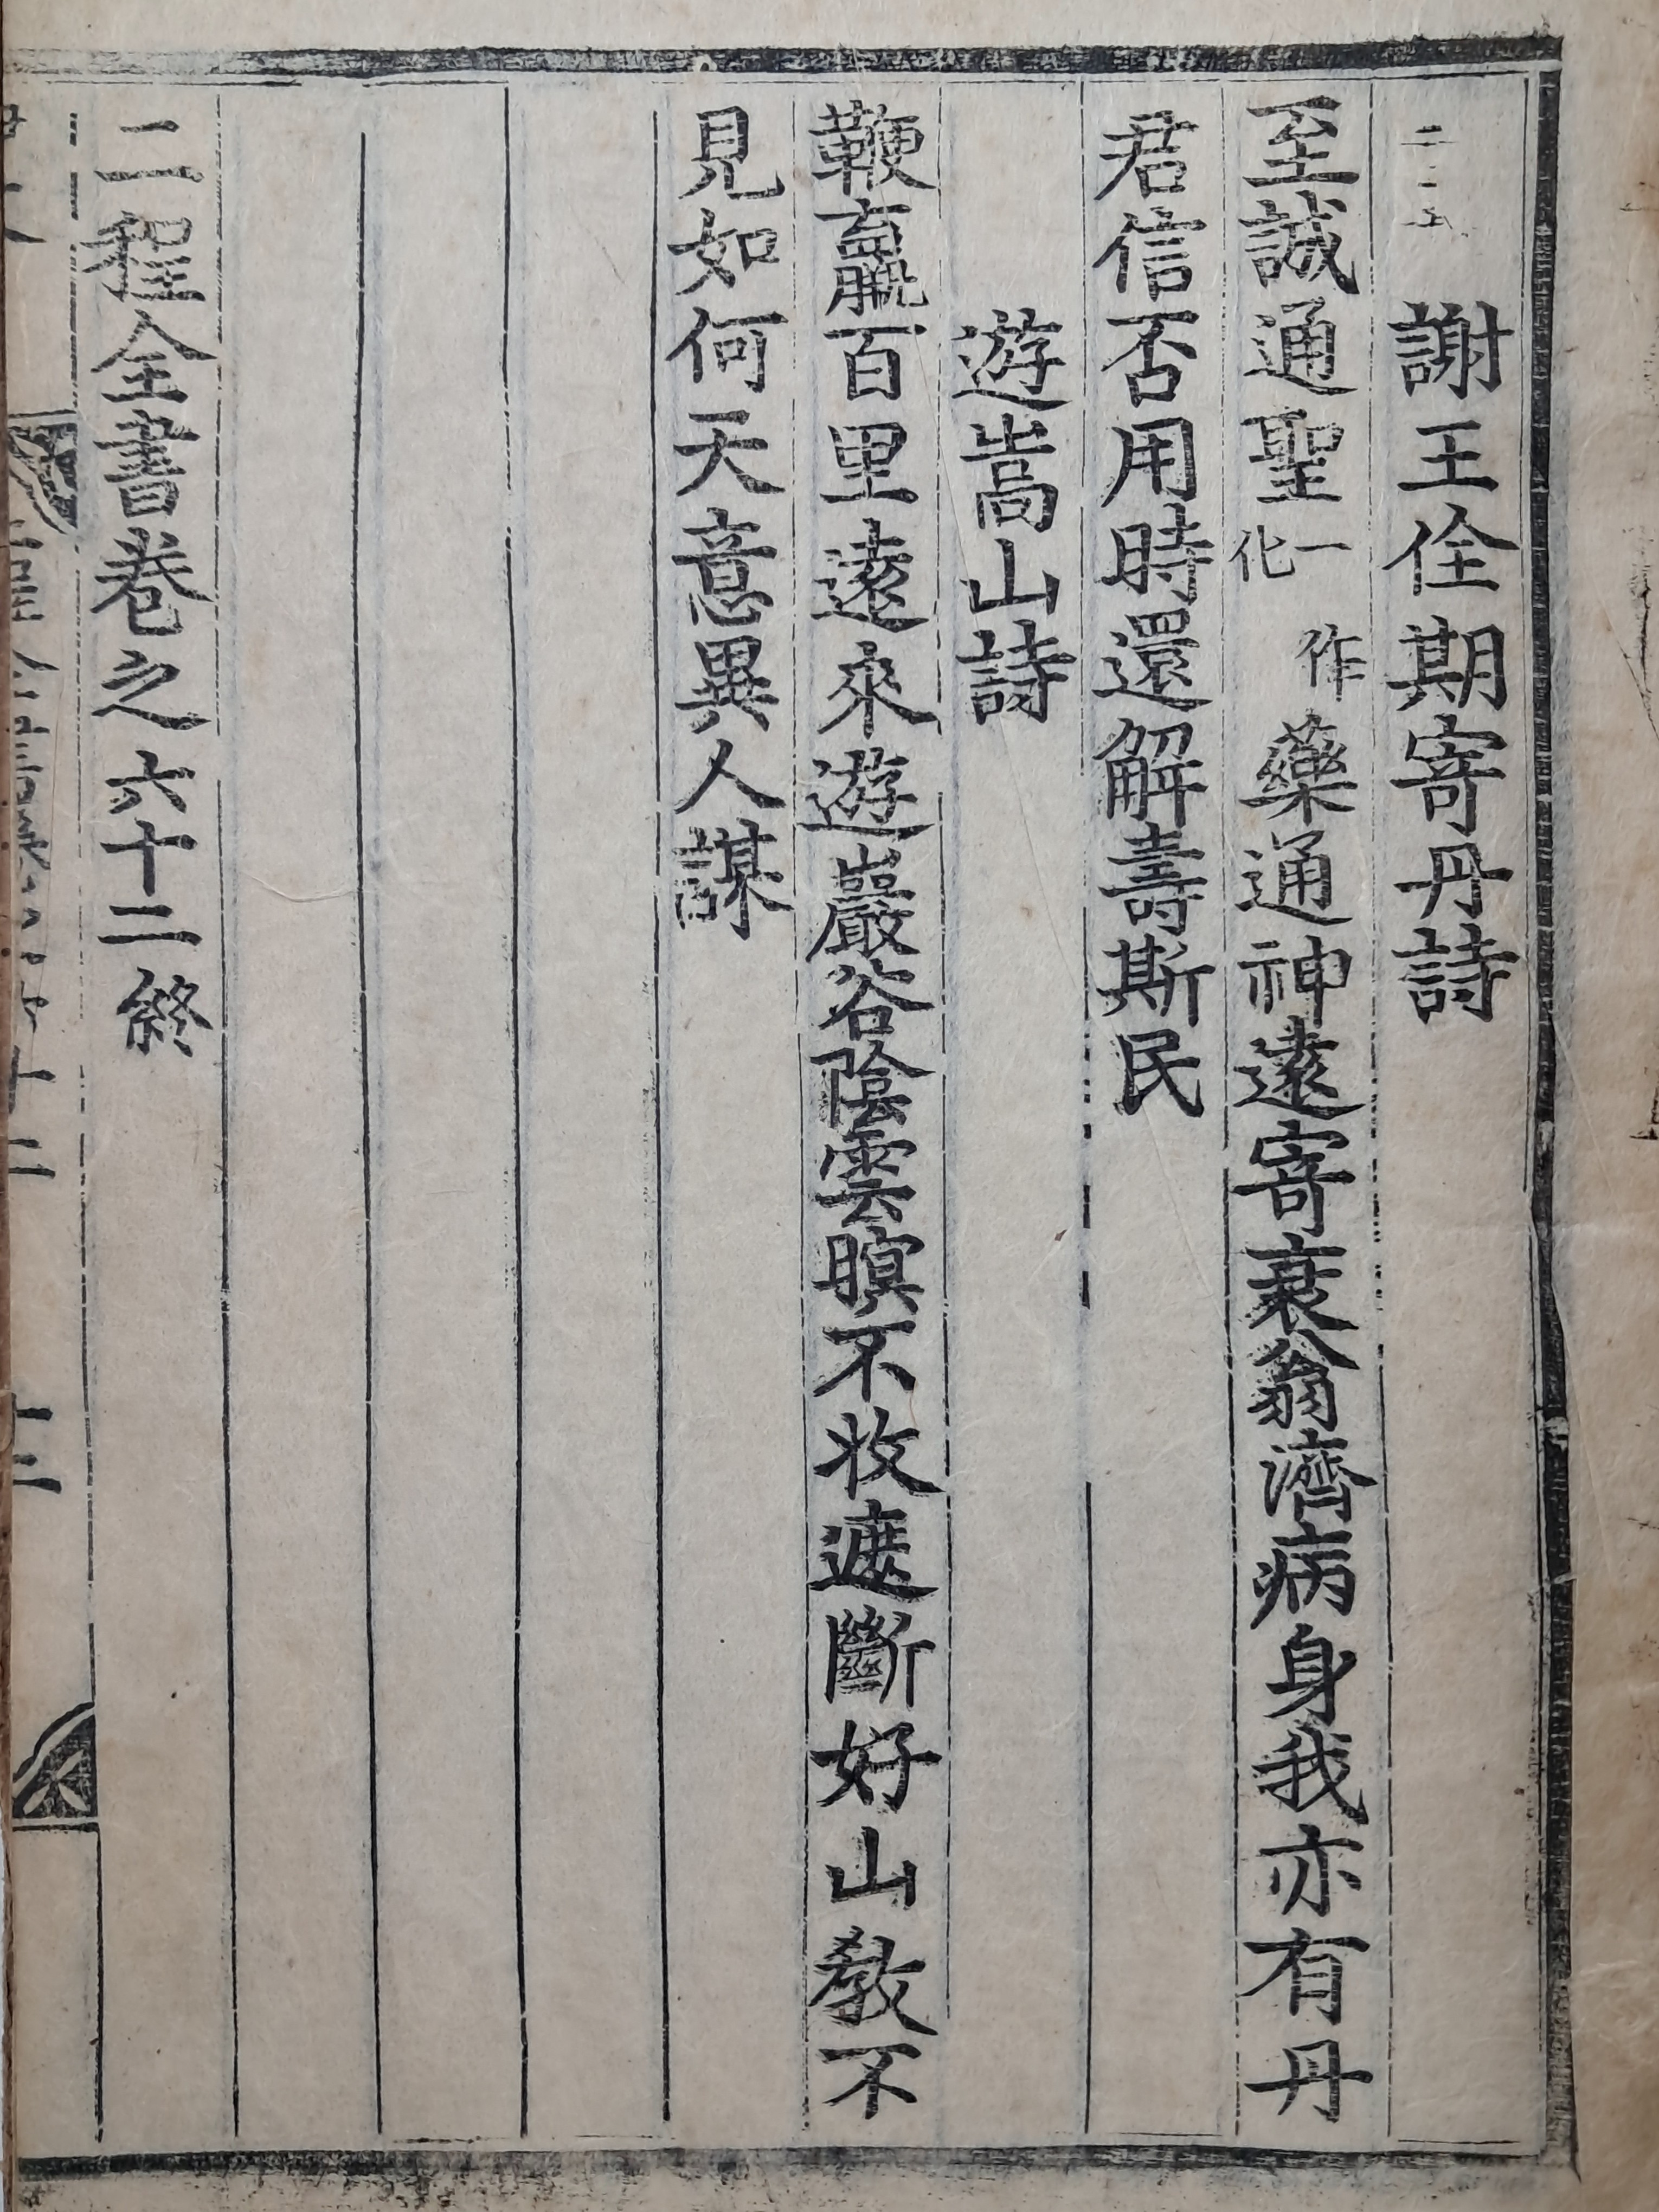 謝王佺期寄丹詩
至誠通聖一作化藥通神遠寄衰翁濟病身我亦有丹
君信否用時還解壽斯民
遊嵩山詩
鞭羸百里遠來遊巖谷陰雲暝不收遮斷好山教不
見如何天意異人謀
二程全書卷之六十二終